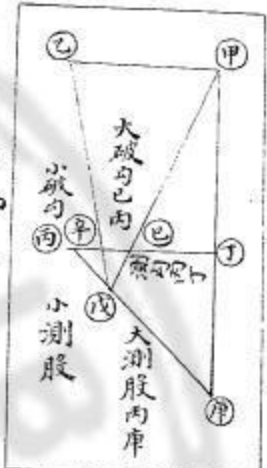 乙
甲
大破勾己丙
小破勾
丙
辛
己
丁
戊
小測股
大測股丙庚
庚